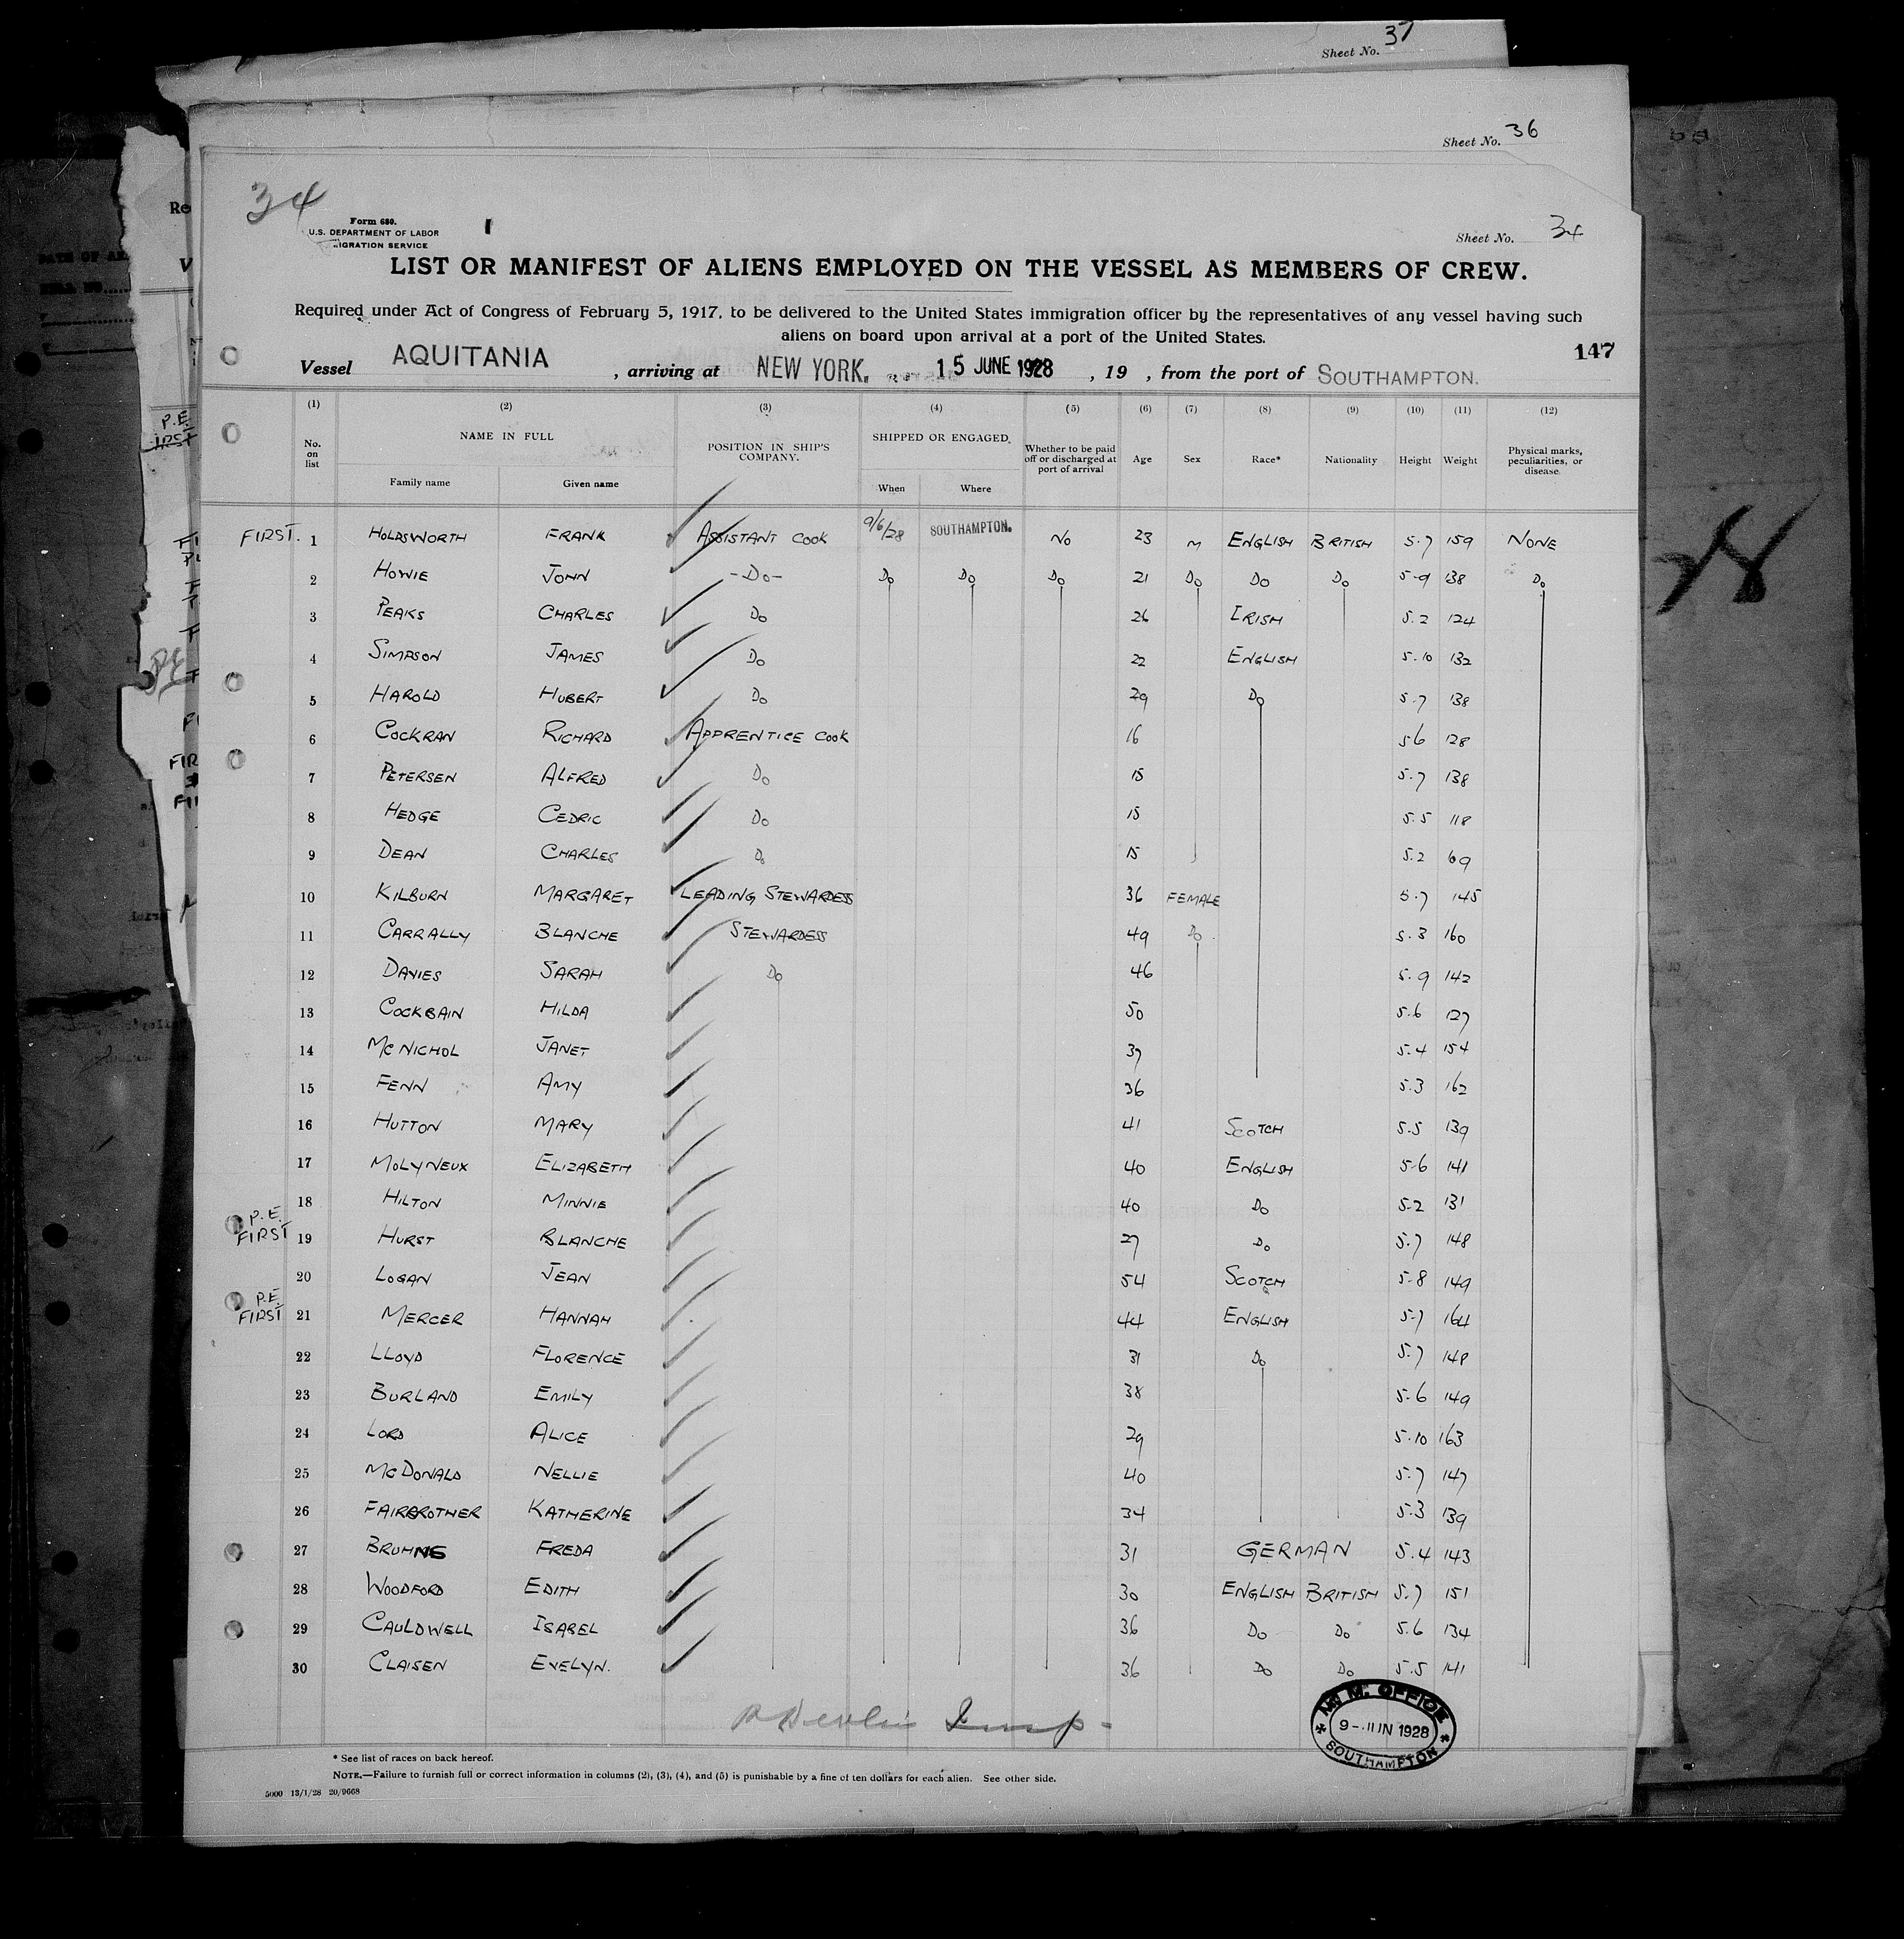 Sheet No. 37
Sheet No. 36
34
Form 680.
U.S. DEPARTMENT OF LABOR
MIGRATION SERVICE
Sheet No. 34
LIST OR MANIFEST OF ALIENS EMPLOYED ON THE VESSEL AS MEMBERS OF CREW.
Required under Act of Congress of February 5, 1917, to be delivered to the United States immigration officer by the representatives of any vessel having such
aliens on board upon arrival at a port of the United States.
147
Vessel AQUITANIA , arriving at NEW YORK. 15 JUNE 1928 , 19 , from the port of SOUTHAMPTON.
(1) (2) (3) (4) (5) (6) (7) (8) (9) (10) (11) (12)
No. on list NAME IN FULL POSITION IN SHIP'S COMPANY. SHIPPED OR ENGAGED. Whether to be paid off or discharged at port of arrival Age Sex Race* Nationality Height Weight Physical marks, peculiarities, or disease
Family name Given name When Where
FIRST. 1 HOLDSWORTH FRANK ASSISTANT COOK 9/6/28 SOUTHAMPTON. NO 23 M ENGLISH BRITISH 5.7 159 NONE
2 HOWIE JOHN -DO- DO DO DO 21 DO DO DO 5-9 138 DO
3 PEAKS CHARLES DO 26 IRISH 5.2 124
4 SIMPSON JAMES DO 22 ENGLISH 5.10 132
5 HAROLD HUBERT DO 29 DO 5.7 138
6 COCKRAN RICHARD APPRENTICE COOK 16 5 6 128
7 PETERSEN ALFRED DO 15 5.7 138
8 HEDGE CEDRIC DO 15 5.5 118
9 DEAN CHARLES DO 15 5.2 69
10 KILBURN MARGARET LEADING STEWARDESS 36 FEMALE 5.7 145
11 CARRALLY BLANCHE STEWARDESS 49 DO 5.3 160
12 DAVIES SARAH DO 46 5.9 142
13 COCKBAIN HILDA 50 5.6 127
14 MCNICHOL JANET 37 5.4 154
15 FENN AMY 36 5.3 162
16 HUTTON MARY 41 SCOTCH 5.5 139
17 MOLYNEUX ELIZABETH 40 ENGLISH 5-6 141
18 HILTON MINNIE 40 DO 5-2 131
P.E. FIRST 19 HURST BLANCHE 27 DO 5.7 148
20 LOGAN JEAN 54 SCOTCH 5-8 149
P.E. FIRST 21 MERCER HANNAH 44 ENGLISH 5.7 164
22 LLOYD FLORENCE 31 DO 5.7 148
23 BURLAND EMILY 38 5.6 149
24 LORD ALICE 29 5.10 163
25 MCDONALD NELLIE 40 5.7 147
26 FAIRBROTHER KATHERINE 34 5.3 139
27 BRUHNS FREDA 31 GERMAN 5.4 143
28 WOODFORD EDITH 30 ENGLISH BRITISH 5.7 151
29 CAULDWELL ISABEL 36 DO DO 5.6 134
30 CLAISEN EVELYN. 36 DO DO 5.5 141
M. M. OFFICE
9-JUN 1928
SOUTHAMPTON
* See list of races on back hereof.
NOTE.—Failure to furnish full or correct information in columns (2), (3), (4), and (5) is punishable by a fine of ten dollars for each alien. See other side.
5000 13/1/28 20/9668